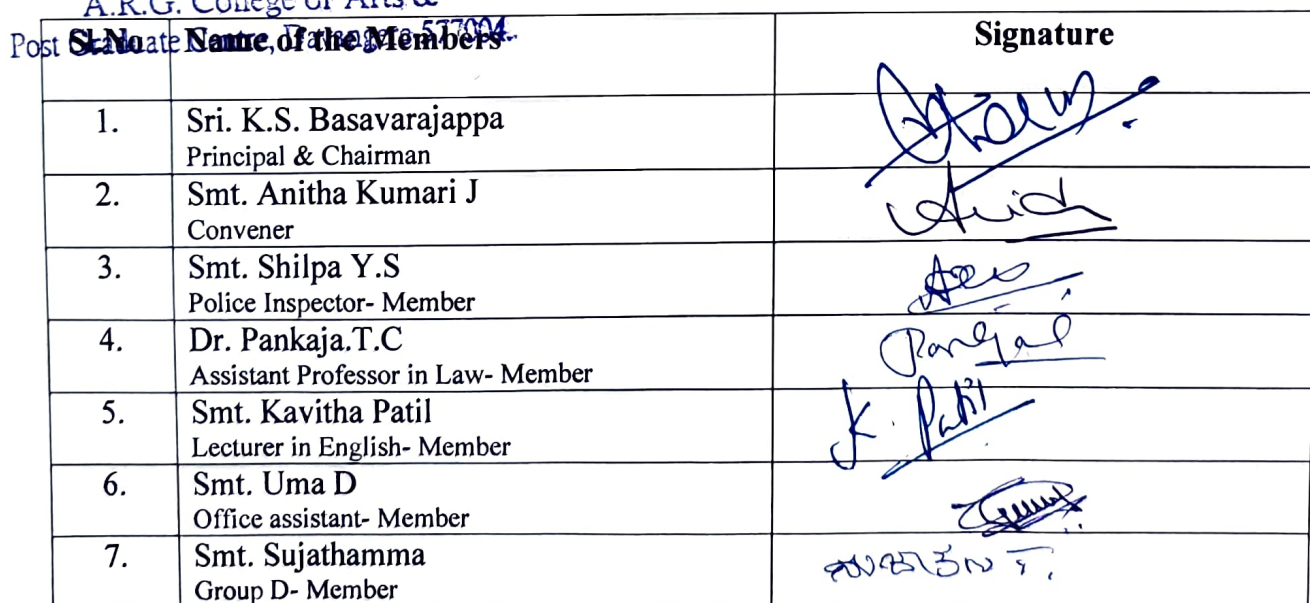 A.R.G. College of Arts &
Post Graduate Centre, Davangere-577004.
Sl.No Name of the Members Signature
1. Sri. K.S. Basavarajappa
Principal & Chairman
2. Smt. Anitha Kumari J
Convener
3. Smt. Shilpa Y.S
Police Inspector- Member
4. Dr. Pankaja.T.C
Assistant Professor in Law- Member
5. Smt. Kavitha Patil
Lecturer in English- Member
K. Patil
6. Smt. Uma D
Office assistant- Member
7. Smt. Sujathamma
Group D- Member